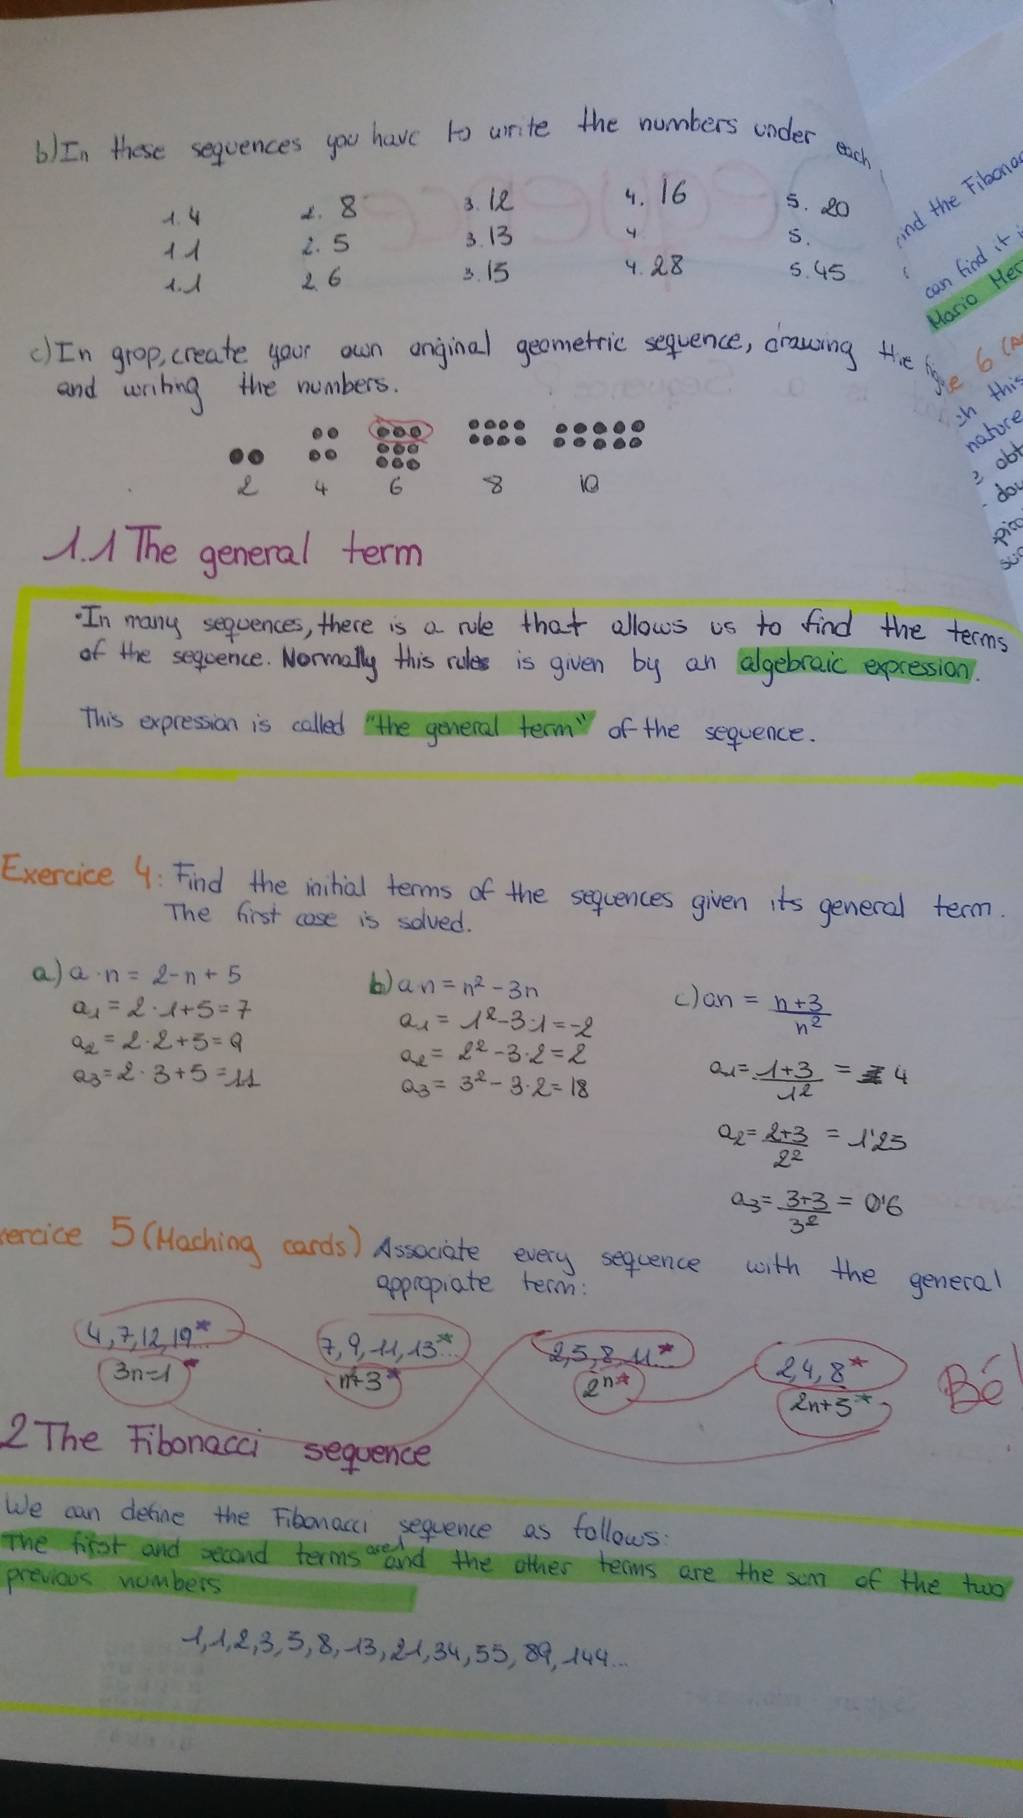 b) In these sequences you have to write the numbers under each
1. 4 2. 8 3. 12 4. 16 5. 20
1 1 2. 5 3. 13 4. 5.
1. 1 2. 6 3. 15 4. 28 5. 45
c) In grop, create your own original geometric sequence, drawing the
and writing the numbers.
2 4 6 8 10
1.1 The general term
• In many sequences, there is a rule that allows us to find the terms
of the sequence. Normally this rules is given by an algebraic expression.
This expression is called "the general term" of the sequence.
Exercice 4: Find the initial terms of the sequences given its general term.
The first case is solved.
a) a·n = 2-n + 5
a1 = 2·1+5=7
a2 = 2·2+5=9
a3 = 2·3+5=11
b) an = n²-3n
a1 = 1²-3·1=-2
a2 = 2²-3·2=2
a3 = 3²-3·2=18
c) an = n+3/n²
a1 = 1+3/1² = 4
a2 = 2+3/2² = 1'25
a3 = 3+3/3² = 0'6
ercice 5 (Maching cards) Associate every sequence with the general
appropiate term:
4, 7, 12, 19*... 7, 9, 11, 13*... 2, 5, 8, 11*... 2, 4, 8*
3n=1* n+3* 2ⁿ* 2n+5*
Bé!
2 The Fibonacci sequence
We can define the Fibonacci sequence as follows:
The first and second terms are 1 and the other terms are the sum of the two
previous numbers
1, 1, 2, 3, 5, 8, 13, 21, 34, 55, 89, 144...
ind the Fibonac
can find it i
Mario Mer
e 6 (A
ch this
nature
obt
dou